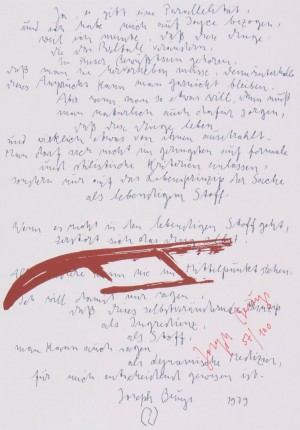 Ja, es gibt eine Parallelität,
und ich habe mich auf Joyce bezogen,
weil ich meinte, daß die Dinge,
die die Gestalt verändern,
zu unser Bewußtsein gehören,
daß man sie verstehen müsse, denn unterhalb
dieses Anspruchs kann man garnicht bleiben.
Aber wenn man so etwas will, dann muß
man natürlich auch dafür sorgen,
daß die Dinge leben
und wirklich etwas von ihnen ausstrahlt.
Man darf sich nicht im geringsten auf formale
und stilistische Kriterien einlassen,
sondern nur auf das Lebensprinzip der Sache
als lebendigem Stoff.
Wenn es nicht in den lebendigen Stoff geht,
zerstört sich das
kann nie im Mittelpunkt stehen.
Ich will damit nur sagen,
daß dieses selbstverändernde Prinzip
als Ingredienz,
als Stoff,
man kann auch sagen
als dynamische Medizin,
für mich entscheidend gewesen ist.
Joseph Beuys 1979
(2)
Joseph Beuys
57/100